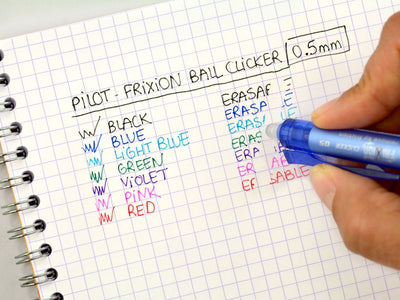 PILOT - FRIXION BALL CLICKER 0.5mm
BLACK ERASAB E
BLUE ERASA LE
LIGHT BLUE ERAS LE
GREEN ERAS
VIOLET ERA
PINK ER ABLE
RED ER SABLE